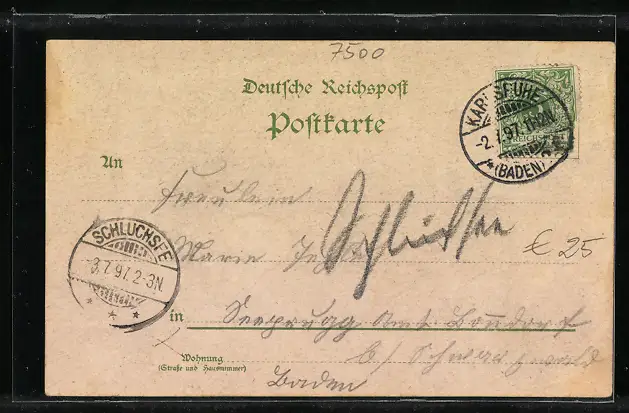 7500
Deutsche Reichspost
Postkarte
KARLSRUHE
-2.7.97.
* (BADEN)
An
Freulein
Marie
Schluchsee
€ 25
SCHLUCHSEE
3.7.97.2-3N.
* * *
in Seebrugg Amt Bonndorf
Wohnung
(Straße und Hausnummer)
b/ Schwarzwald
Baden